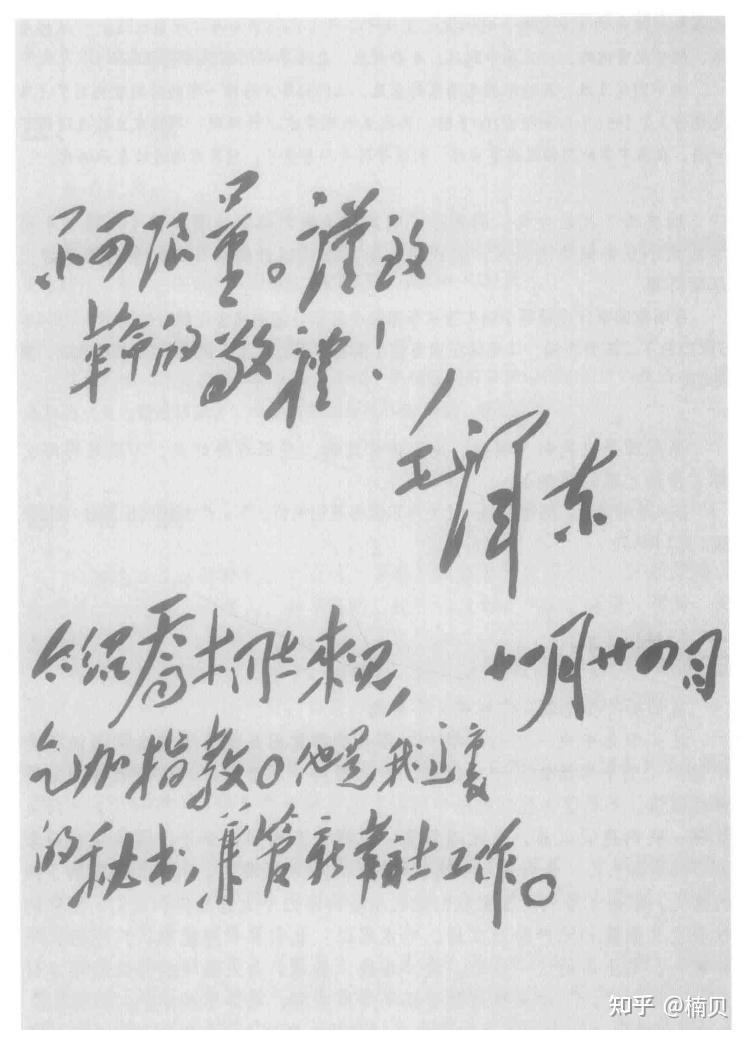 不可限量。謹致
革命的敬禮！
毛澤东
十一月廿四日
介紹喬木同志來见，
乞加指教。他是我這裏
的秘书，兼管新華社工作。
知乎 @楠贝